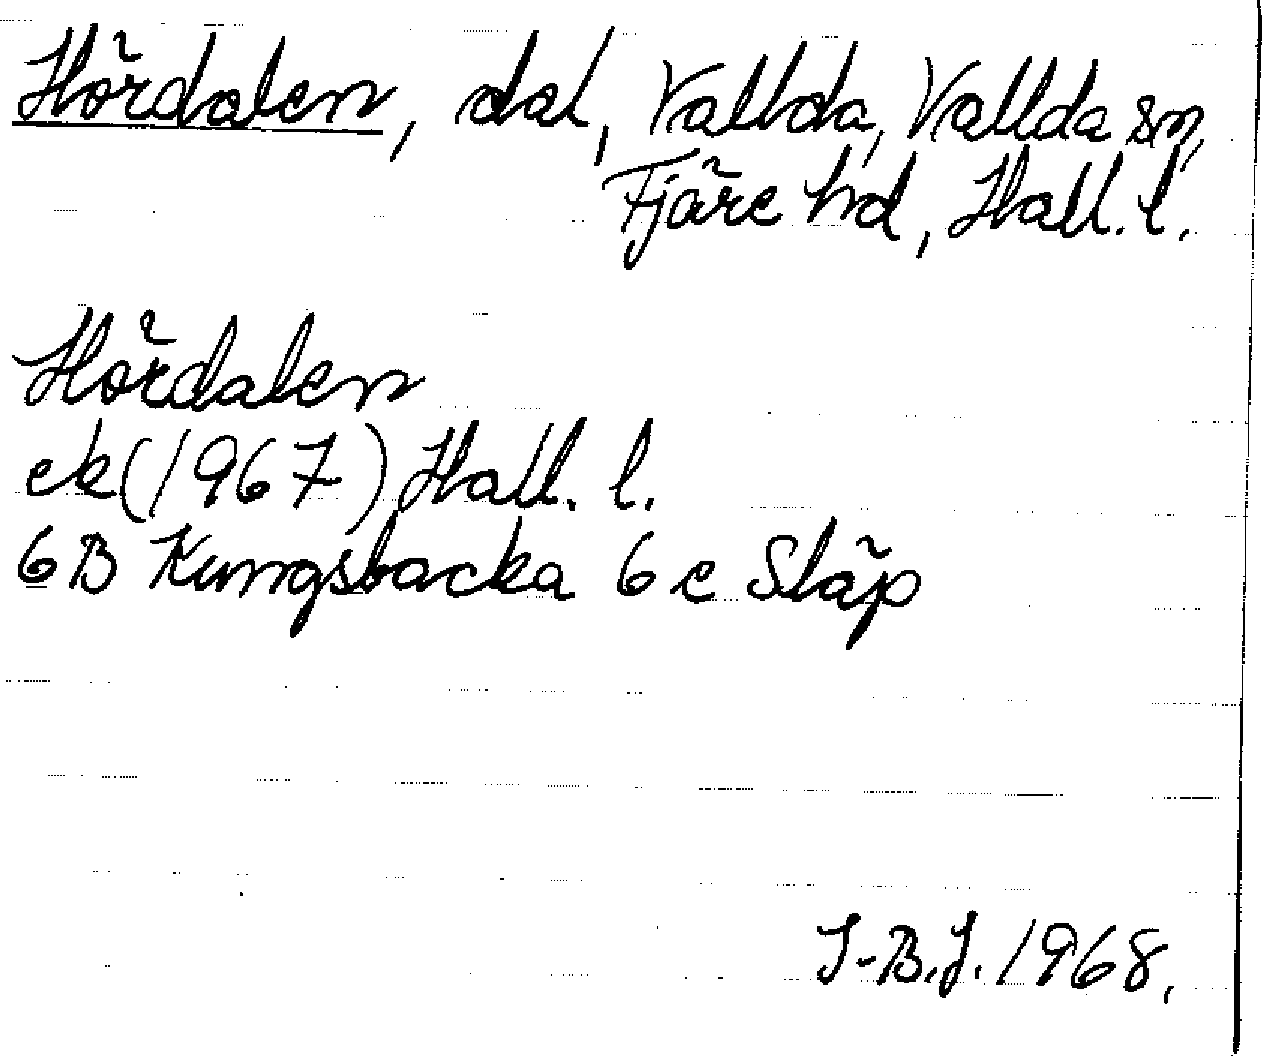 Hördalen, dal, Vallda, Vallda sn,
Fjäre hd, Hall. l.
Hördalen
ek (1967) Hall. l.
6B Kungsbacka 6 e Släp
I-B.J. 1968.